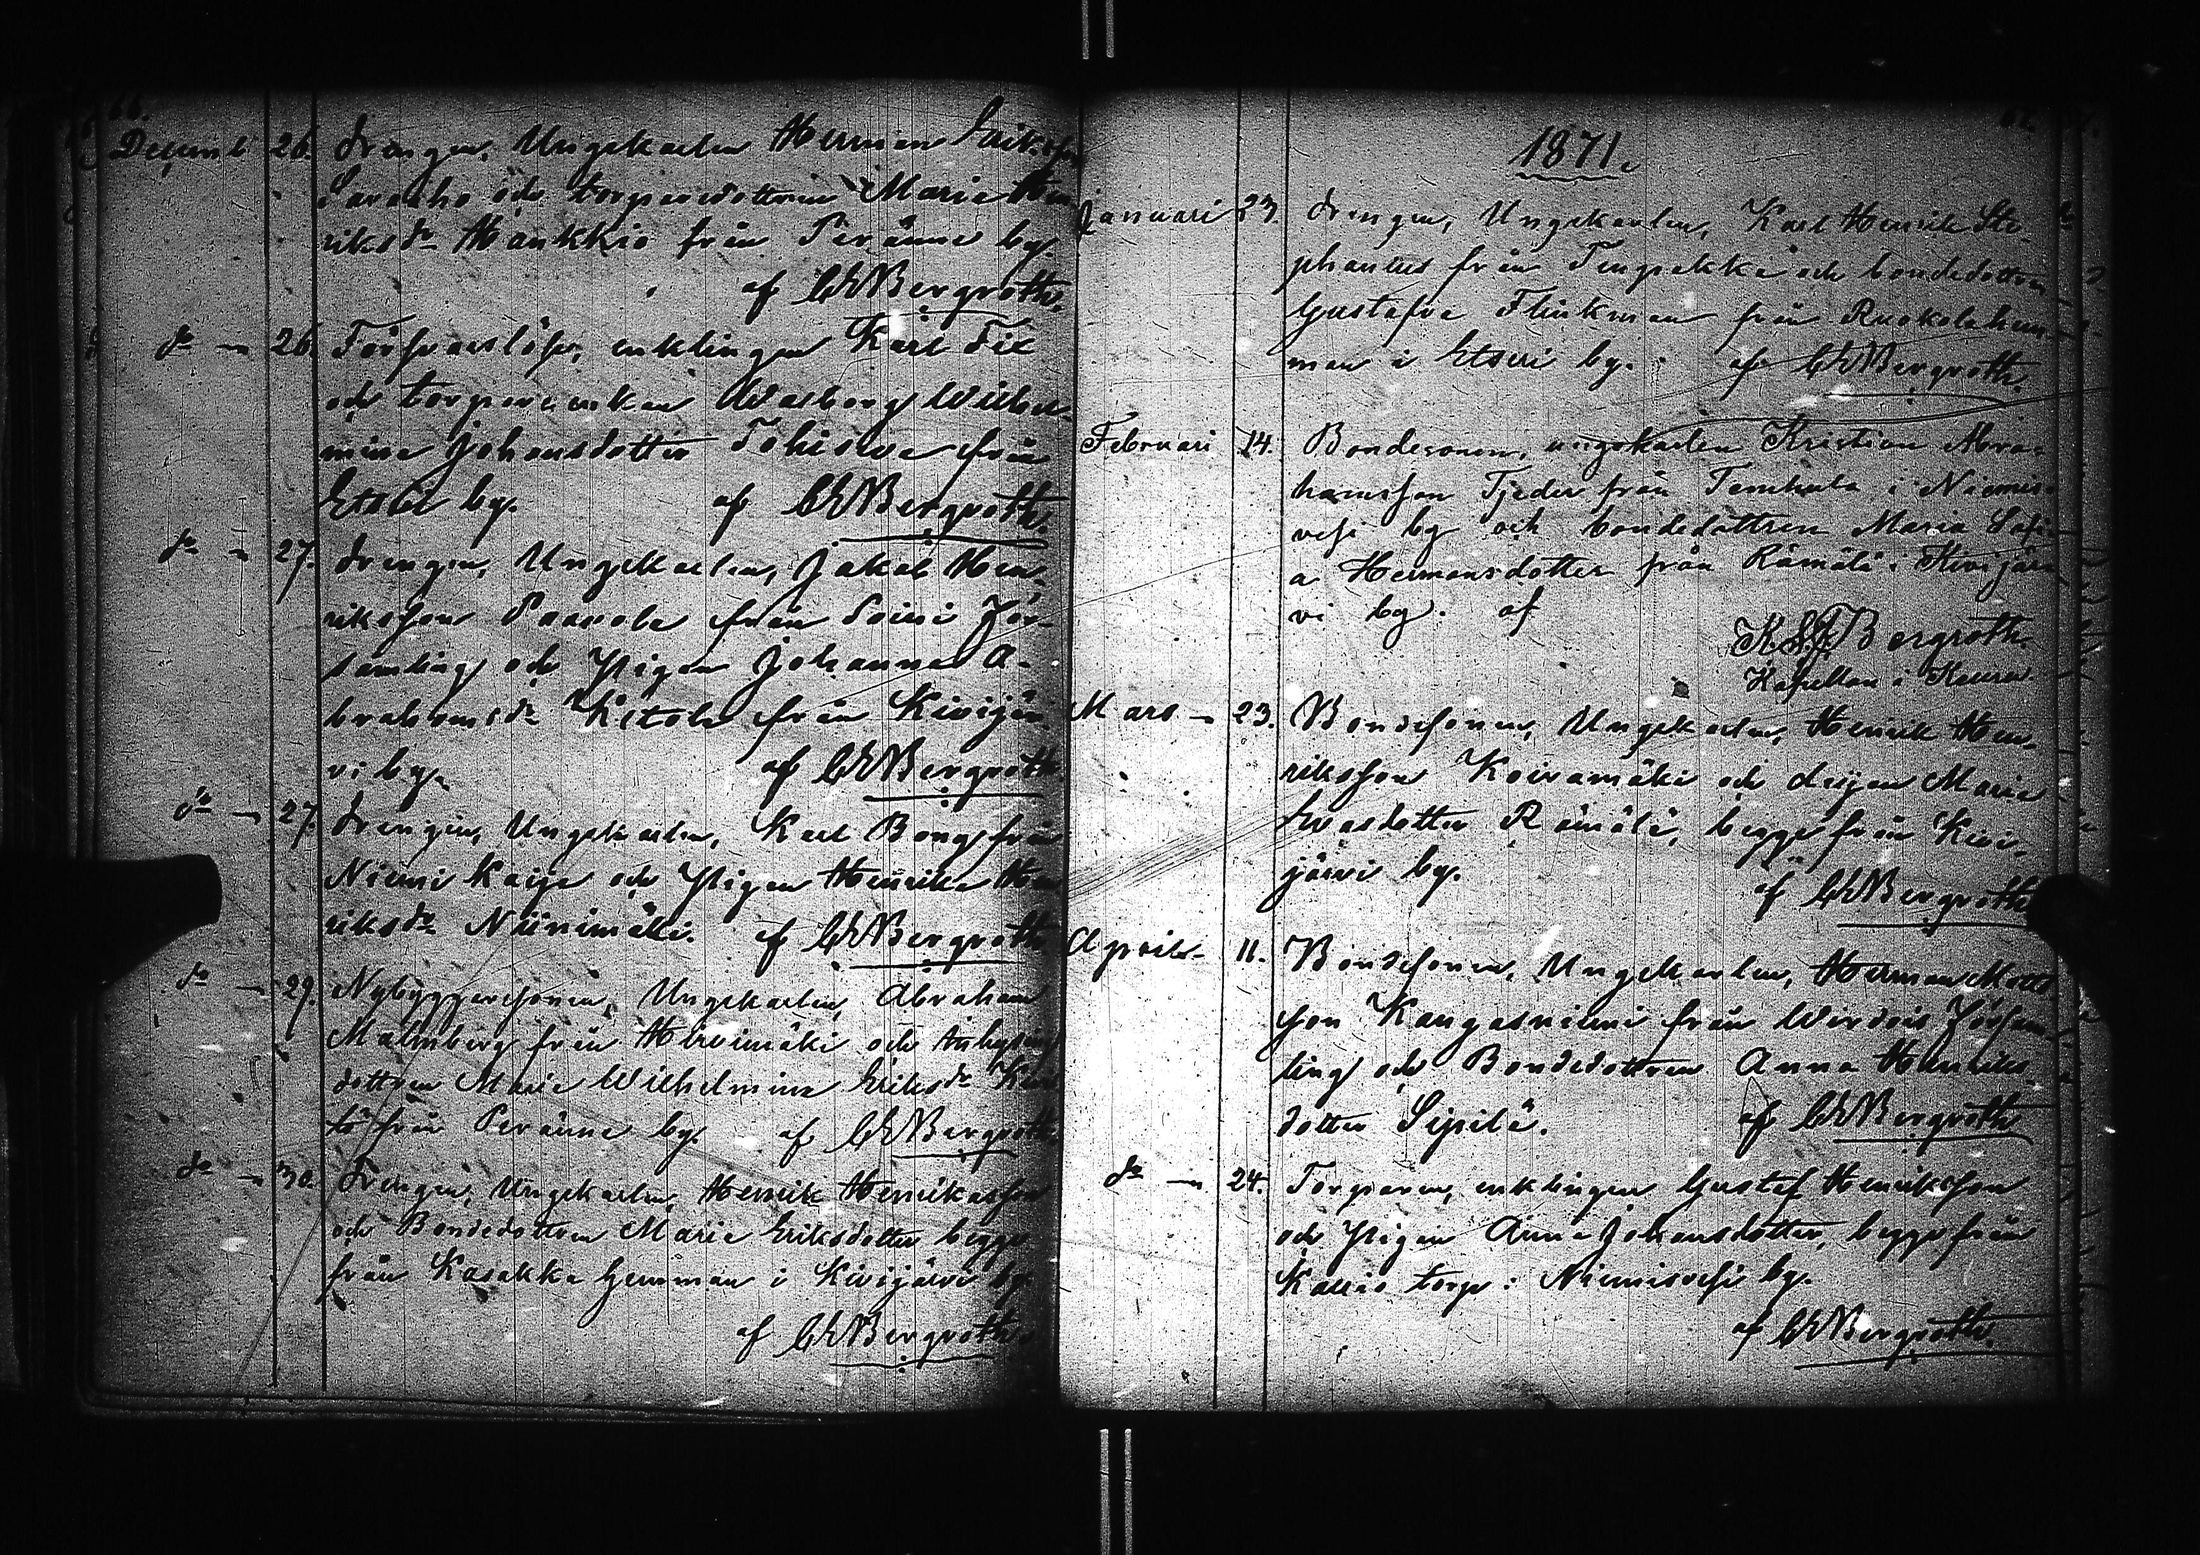 66.
Decemb 26. Drengen, Ungekarlen Herman Eriksson
Saraaho och torparedottren Maria Hen-
riksdr Haukkio från Peränne by.
af CEBergroth.
do — 26. Försvarslöse, enklingen Karl
och torpareenkan Walborg Wilhel-
mina Johansdotter Tohisewa från
Etseri by. af CEBergroth.
do — 27. Drengen, Ungekarlen, Jakob Hen-
riksson Paavola från Soini För-
samling och Pigan Johanna A-
brahamsdr Ketola från Kivijär-
vi by. af CEBergroth
do — 27. Drengen, Ungekarlen, Karl Bong från
Niemi kaija och Pigan Henrika Hen
riksdr Niinimäki. af CEBergroth.
do — 29. Nybyggaresonen, Ungekarlen, Abraham
Malmberg från Hirvimäki och
dottren Maria Wilhelmina Eriksdr
tö från Peränne by. af CEBergroth
do — 30. Drengen, Ungekarlen, Henrik Henriksson
och Bondedottren Maria Eriksdotter begge
från Kasakka hemman i Kivijärvi by.
af CEBergroth.
1871.
Januari 23. Drengen, Ungekarlen, Karl Henrik Ste-
phanius från Tengsekkä och bondedottren
Gustafva Flinkman från Ruokolahem-
man i Etseri by. af CEBergroth.
Februari 14. Bondesonen, ungekarlen Kristian Abra-
hamsson Tjeder från Temhula i Niemis-
vesi by och bondedottren Maria Sofi-
a Hermansdotter från Rämälä i Kivijär-
vi by. af
Bergroth.
Kapellan i Keuru.
Mars — 23. Bondesonen, Ungekarlen, Henrik Hen-
riksson Koiramäki och deijan Maria
Evasdotter Rämälä, begge från Kivi-
järvi by. af CEBergroth
April — 11. Bondesonen, Ungekarlen, Herman Matts
son Kangasniemi från Wirdois Försam-
ling och Bondedottren Anna Henriks-
dotter Sipilä. af CEBergroth
do — 24. Torparen, enklingen Gustaf Henriksson
och Pigan Anna Johansdotter, begge från
Kallio torp i Niemisvesi by.
af CEBergroth.